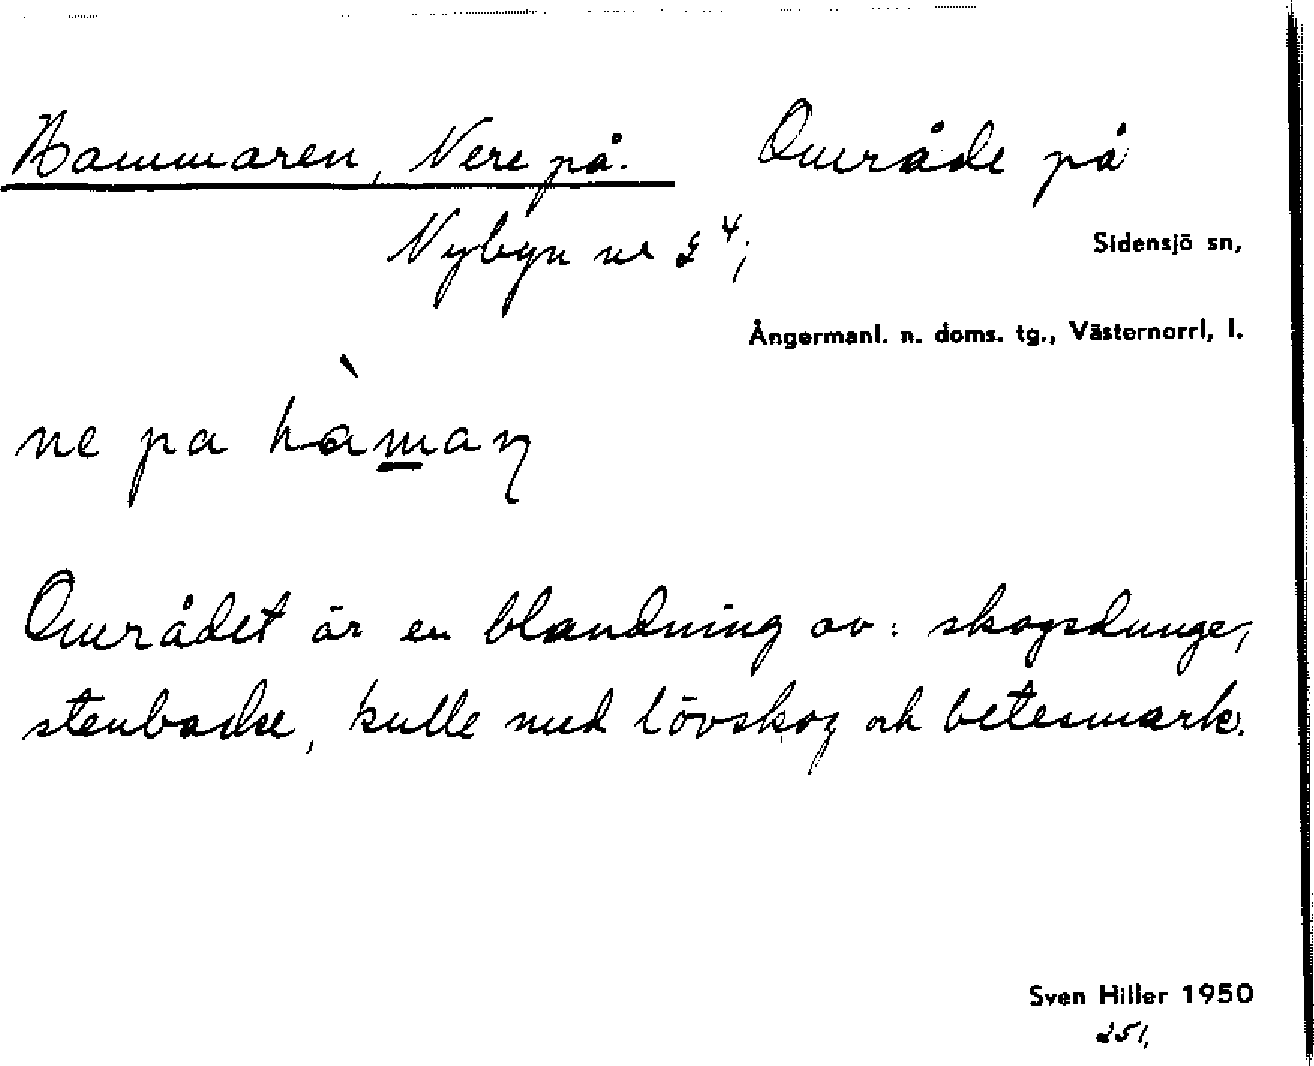 Hammaren, Nere på. Område på
Nybyn nr 2⁴;
Sidensjö sn,
Ångermanl. n. doms. tg., Västernorrl, l.
ne pa hàmaŋ
Området är en blandning av: skogsdunge,
stenbacke, kulle med lövskog och betesmark.
Sven Hiller 1950
251,